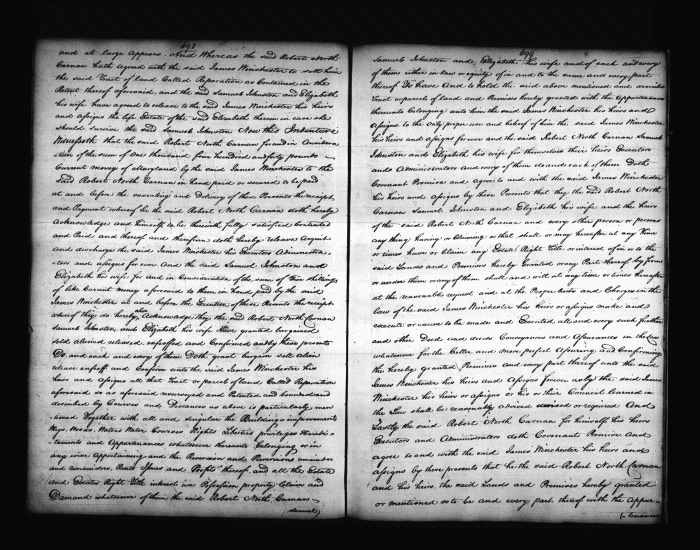 698
and at large appears. And Whereas the said Robert North
Carnan hath agreed with the said James Winchester to sell him
the said Tract of land Called Reparation as Contained in the
Patent thereof aforesaid, and the said Samuel Johnston and Elizabeth
his wife have agreed to release to the said James Winchester his heirs
and assigns the life Estate of the said Elizabeth therein in case she
should survive the said Samuel Johnston Now this Indenture
Witnesseth that the said Robert North Carnan for and in Considera
tion of the sum of One thousand four hundred and forty pounds
Current money of Maryland by the said James Winchester to the
said Robert North Carnan in hand paid or secured to be paid
at and before the ensealing and Delivery of these Presents the receipt
and Payment whereof he the said Robert North Carnan doth hereby
Acknowledge and himself to be therewith fully satisfied contented
and Paid and thereof and therefrom doth hereby release Acquit
and discharge the said James Winchester his Executors Administra
tors and assigns for ever And the said Samuel Johnston and
Elizabeth his wife for and in Consideration of the sum of five shillings
of like Current money aforesaid to them in hand paid by the said
James Winchester at and before the Execution of these Presents the receipt
whereof they do hereby also Acknowledge they the said Robert North Carnan
Samuel Johnston, and Elizabeth his wife Have granted bargained
sold aliened released enfeoffed and Confirmed and by these presents
Do, and each and every of them Doth grant bargain sell alien
release enfeoff and Confirm unto the said James Winchester his
heirs and Assigns all that Tract or parcel of land Called Reparation
aforesaid as so aforesaid resurveyed and Patented and bounded and
described by Courses and Distances as above is particularly men
tioned Together with all and singular the Buildings improvements
Ways, Woods, Waters Water Courses Rights Liberties privileges Heredi
taments and Appurtenances whatsoever thereunto belonging or in
any wise Appertaining and the Reversion and Reversions remainder
and remainders, Rents Issues and Profits thereof and all the Estate
and Estates Right Title interest use Possession property Claim and
Demand whatsoever of them the said Robert North Carnan
Samuel
699
Samuel Johnston and Elizabeth his wife and of each and every
of them either in law or equity of in and to the same and every part
thereof To have And to hold the said above mentioned and described
Tract or parcel of land and Premises hereby granted with the appurtenances
thereunto belonging unto the said James Winchester his heirs and
Assigns to the only proper use and behoof of him the said James Winchester
his heirs and assigns forever and the said Robert North Carnan Samuel
Johnston and Elizabeth his wife for themselves their heirs Executors
and Administrators and every of them do and each of them Doth
Covenant Promise and agree to and with the said James Winchester
his heirs and assigns by these Presents that they the said Robert North
Carnan Samuel Johnston and Elizabeth his wife and the heirs
of the said Robert North Carnan and every other person or persons
any thing having or claiming or that shall or may hereafter at any time
or times have or Claim any Estate Right Title or interest of in or to the
said Lands and Premises hereby Granted or any Part thereof by from
or under them or any of them shall and will at any time or times hereafter
at the reasonable request and at the Proper Costs and Charges in the
law of the said James Winchester his heirs or assigns make and
execute or cause to be made and Executed all and every such further
and other Deed and deeds Conveyances and Assurances in the law
whatsoever for the better and more perfect Assuring and Confirming
the hereby granted Premises and every part thereof unto the said
James Winchester his heirs and Assigns forever as by the said James
Winchester his heirs or assigns or his or their Council learned in
the Law shall be reasonably advised devised or required And
Lastly the said Robert North Carnan for himself his heirs
Executors and Administrators doth Covenant Promise And
agree to and with the said James Winchester his heirs and
assigns by these presents that he the said Robert North Carnan
and his heirs the said Lands and Premises hereby granted
or mentioned so to be and every part thereof with the Appur
tenances